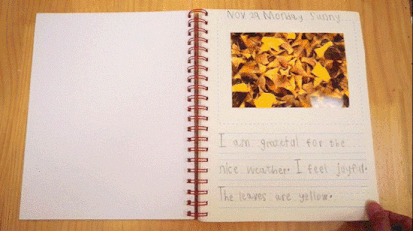 Nov 29 Monday. Sunny.
I am grateful for the
nice weather. I feel joyful.
The leaves are yellow.